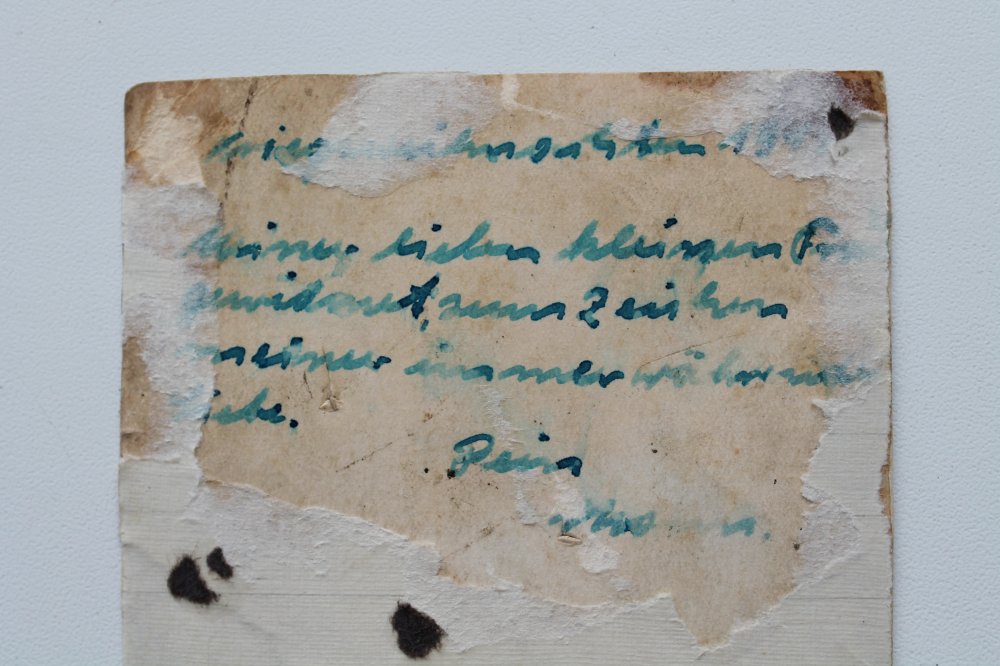 Kriegsweihnachten
Meiner lieben kleinen
gewidmet, zum Zeichen
meiner immer währenden
Liebe.
Dein